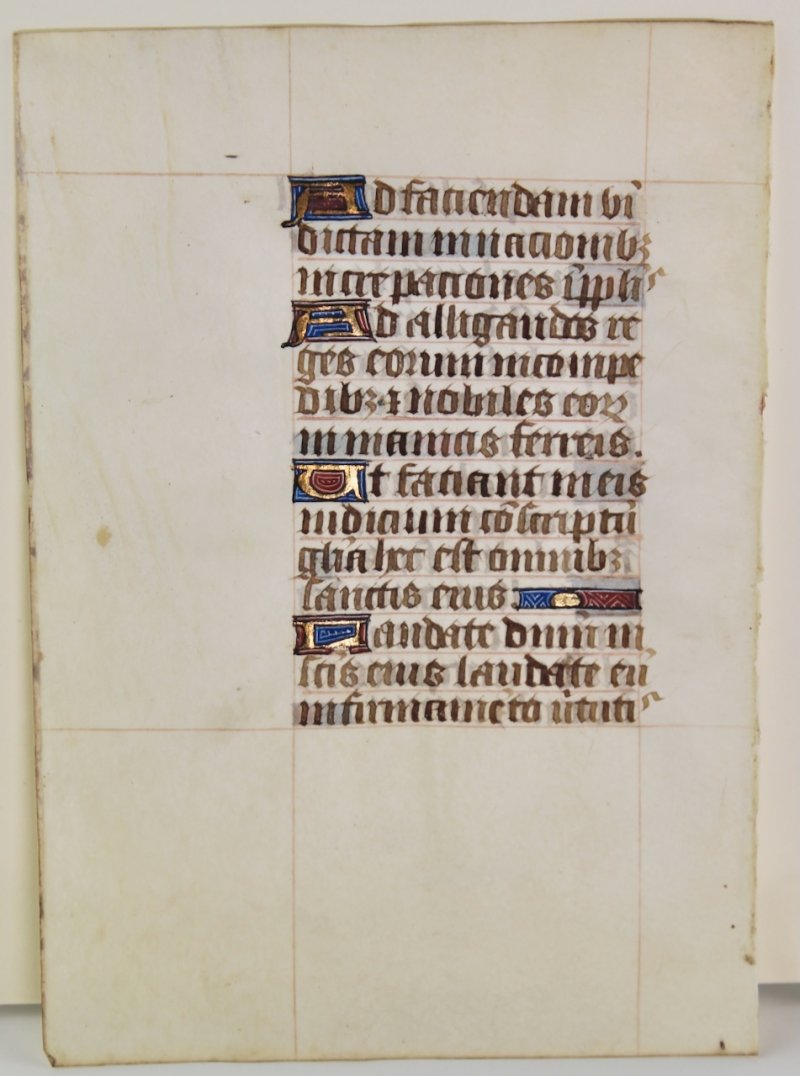 Ad faciendam vī
dictam in nacionibꝫ
increpaciones ī ppl'is
Ad alligandos re
ges eorum in compe
dibꝫ ⁊ nobiles eoꝝ
in manicis ferreis.
Ut faciant in eis
iudicium cōscriptū
gl'ia hec est omnibꝫ
sanctis eius.
Laudate dnm̄ in
sc̄is eius laudate eū
in firmamēto v̄tuti⁹